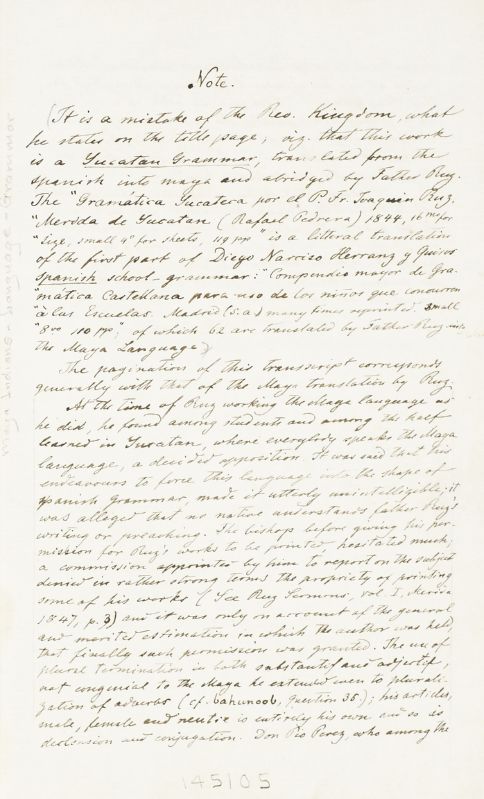 Note.
(It is a mistake of the Rev. Kingdom, what
he states on the title page, viz. that this work
is a Yucatan Grammar, translated from the
spanish into maya and abridged by Father Ruz.
The "Gramática Yucateca por el P. Fr. Joaquin Ruz,
"Merida de Yucatan (Rafael Pedrera) 1844, 16mo for
"size, small 4° for sheets, 119 pp" is a litteral translation
of the first part of Diego Narciso Herranz y Quiros
spanish school-grammar: "Compendio mayor de Gra-
"mática Castellana para uso de los niños que concurren
"à las Escuelas. Madrid (s. a.) many times reprinted. Small
"8vo 110 pp"; of which 62 are translated by Father Ruz into
the Maya Language.)
The pagination of this transcript corresponds
generally with that of the Maya translation by Ruz.
At the time of Ruz working the Maya language as
he did, he found among students and among the half
learned in Yucatan, where everybody speaks the Maya
language, a decided opposition. It was said that his
endeavours to force this language into the shape of
spanish grammar, made it utterly unintelligible; it
was alleged that no native understands father Ruz's
writing or preaching. The bishops before giving his per-
mission for Ruz's works to be printed, hesitated much;
a commission appointed by him to report on the subject
denied in rather strong terms the propriety of printing
some of his works (See Ruz Sermons, vol I, Merida
1847, p. 3) and it was only on account of the general
and merited estimation in which the author was held,
that finally such permission was granted. The use of
plural termination in both substantif and adjectif,
not congenial to the Maya he extended even to plurali-
zation of adverbs (cf. bahunoob, Question 35.); his articles,
male, female and neutre is entirely his own and so is
declension and conjugation. Don Pio Perez, who among the
Maya Indians - Language - Grammar
145105